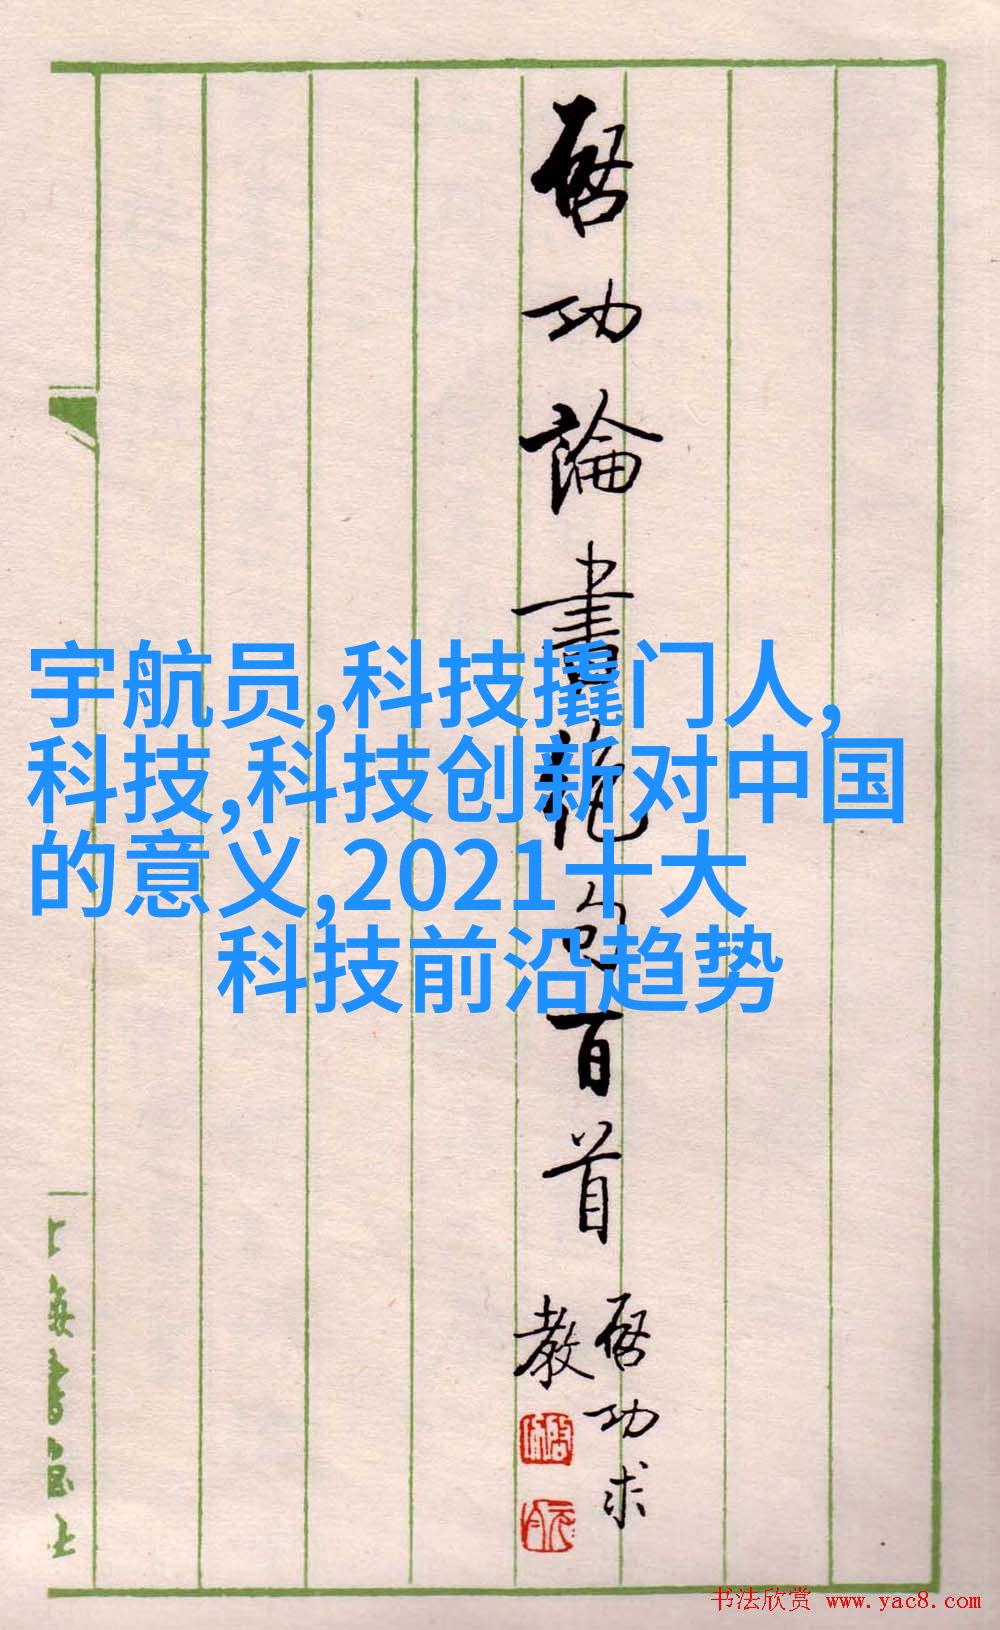 启功論書絶句百首
启功求
教
上海書画社
宇航员,科技撬门人,
科技,科技创新对中国
的意义,2021十大
科技前沿趋势
书法欣赏 www.yac8.com